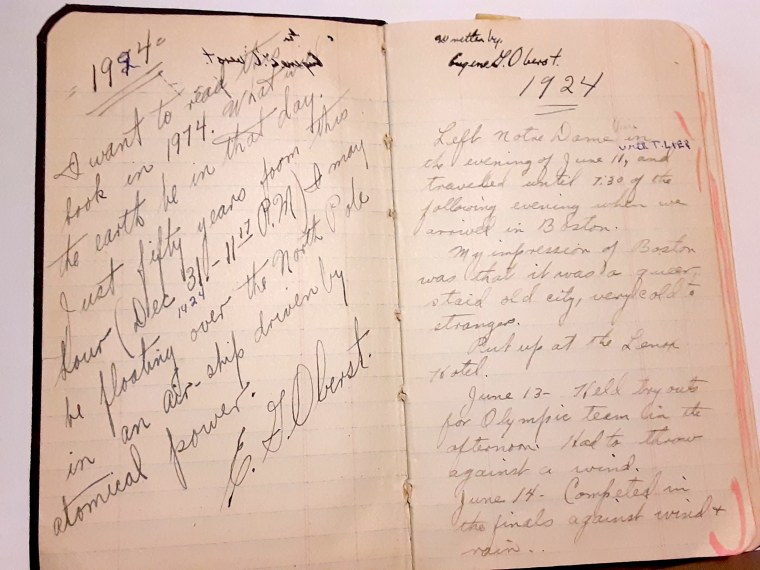 1924
I want to read this
book in 1974. What will
the earth be in that day.
Just fifty years from this
hour (Dec 31, - 11 15 P.M) I may
1924
be floating over the North Pole
in an air-ship driven by
atomical power.
E. G. Oberst.
written by.
Eugene G. Oberst.
1924
Left Notre Dame in
the evening of June 11, and
travelled until 7:30 of the
following evening when we
arrived in Boston.
My impression of Boston
was that it was a queer,
staid old city, very cold to
strangers.
Put up at the Lenox
Hotel.
June 13- Held try outs
for Olympic team in the
afternoon. Had to throw
against a wind.
June 14- Competed in
the finals against wind +
rain..